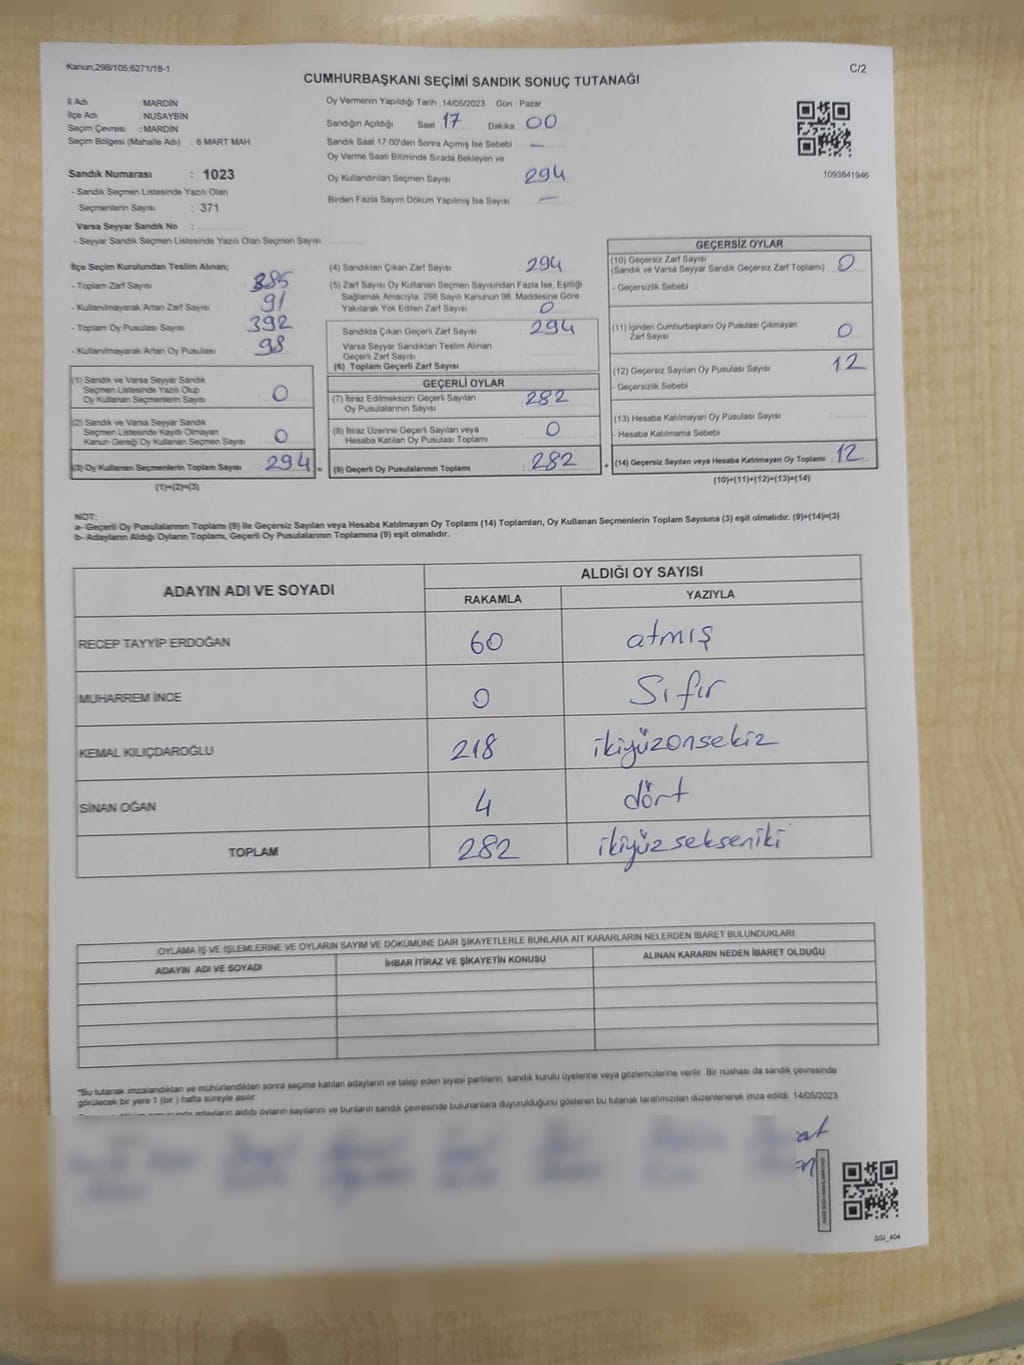 Kanun,298/105;6271/18-1
C/2
CUMHURBAŞKANI SEÇİMİ SANDIK SONUÇ TUTANAĞI
İl Adı : MARDİN
İlçe Adı : NUSAYBİN
Seçim Çevresi : MARDİN
Seçim Bölgesi (Mahalle Adı) : 8 MART MAH.
Sandık Numarası : 1023
- Sandık Seçmen Listesinde Yazılı Olan
Seçmenlerin Sayısı : 371
Varsa Seyyar Sandık No :
- Seyyar Sandık Seçmen Listesinde Yazılı Olan Seçmen Sayısı
Oy Vermenin Yapıldığı Tarih 14/05/2023 Gün : Pazar
Sandığın Açıldığı Saat 17 Dakika 00
Sandık Saat 17:00'den Sonra Açımış İse Sebebi —
Oy Verme Saati Bitiminde Sırada Bekleyen ve
Oy Kullandırılan Seçmen Sayısı 294
Birden Fazla Sayım Döküm Yapılmış İse Sayısı —
1093841946
İlçe Seçim Kurulundan Teslim Alınan;
- Toplam Zarf Sayısı 385
- Kullanılmayarak Artan Zarf Sayısı 91
- Toplam Oy Pusulası Sayısı 392
- Kullanılmayarak Artan Oy Pusulası 98
(1) Sandık ve Varsa Seyyar Sandık
Seçmen Listesinde Yazılı Olup
Oy Kullanan Seçmenlerin Sayısı 0
(2) Sandık ve Varsa Seyyar Sandık
Seçmen Listesinde Kayıtlı Olmayan
Kanun Gereği Oy Kullanan Seçmen Sayısı 0
(3) Oy Kullanan Seçmenlerin Toplam Sayısı 294 =
(1)+(2)=(3)
(4) Sandıktan Çıkan Zarf Sayısı 294
(5) Zarf Sayısı Oy Kullanan Seçmen Sayısından Fazla İse, Eşitliği
Sağlamak Amacıyla, 298 Sayılı Kanunun 98. Maddesine Göre
Yakılarak Yok Edilen Zarf Sayısı 0
Sandıkta Çıkan Geçerli Zarf Sayısı 294
Varsa Seyyar Sandıktan Teslim Alınan
Geçerli Zarf Sayısı
(6) Toplam Geçerli Zarf Sayısı
GEÇERLİ OYLAR
(7) İtiraz Edilmeksizin Geçerli Sayılan
Oy Pusulalarının Sayısı : 282
(8) İtiraz Üzerine Geçerli Sayılan veya
Hesaba Katılan Oy Pusulası Toplamı 0
(9) Geçerli Oy Pusulalarının Toplamı : 282 +
GEÇERSİZ OYLAR
(10) Geçersiz Zarf Sayısı
(Sandık ve Varsa Seyyar Sandık Geçersiz Zarf Toplamı) 0
- Geçersizlik Sebebi :
(11) İçinden Cumhurbaşkanı Oy Pusulası Çıkmayan
Zarf Sayısı 0
(12) Geçersiz Sayılan Oy Pusulası Sayısı 12
- Geçersizlik Sebebi :
(13) Hesaba Katılmayan Oy Pusulası Sayısı
- Hesaba Katılmama Sebebi :
(14) Geçersiz Sayılan veya Hesaba Katılmayan Oy Toplamı 12
(10)+(11)+(12)+(13)=(14)
NOT:
a- Geçerli Oy Pusulalarının Toplamı (9) ile Geçersiz Sayılan veya Hesaba Katılmayan Oy Toplamı (14) Toplamları, Oy Kullanan Seçmenlerin Toplam Sayısına (3) eşit olmalıdır. (9)+(14)=(3)
b- Adayların Aldığı Oyların Toplamı, Geçerli Oy Pusulalarının Toplamına (9) eşit olmalıdır.
ADAYIN ADI VE SOYADI
ALDIĞI OY SAYISI
RAKAMLA YAZIYLA
RECEP TAYYİP ERDOĞAN 60 atmış
MUHARREM İNCE 0 Sıfır
KEMAL KILIÇDAROĞLU 218 ikiyüzonsekiz
SİNAN OĞAN 4 dört
TOPLAM 282 ikiyüzsekseniki
OYLAMA İŞ VE İŞLEMLERİNE VE OYLARIN SAYIM VE DÖKÜMÜNE DAİR ŞİKAYETLERLE BUNLARA AİT KARARLARIN NELERDEN İBARET BULUNDUKLARI
ADAYIN ADI VE SOYADI İHBAR İTİRAZ VE ŞİKAYETİN KONUSU ALINAN KARARIN NEDEN İBARET OLDUĞU
"Bu tutanak imzalandıktan ve mühürlendikten sonra seçime katılan adayların ve talep eden siyasi partilerin sandık kurulu üyelerine veya gözlemcilerine verilir. Bir nüshası da sandık çevresinde
görülecek bir yere 1 (bir ) hafta süreyle asılır.
adayların aldığı oyların sayılarını ve bunların sandık çevresinde bulunanlara duyurulduğunu gösteren bu tutanak tarafımızdan düzenlenerek imza edildi. 14/05/2023
at
SSI_404